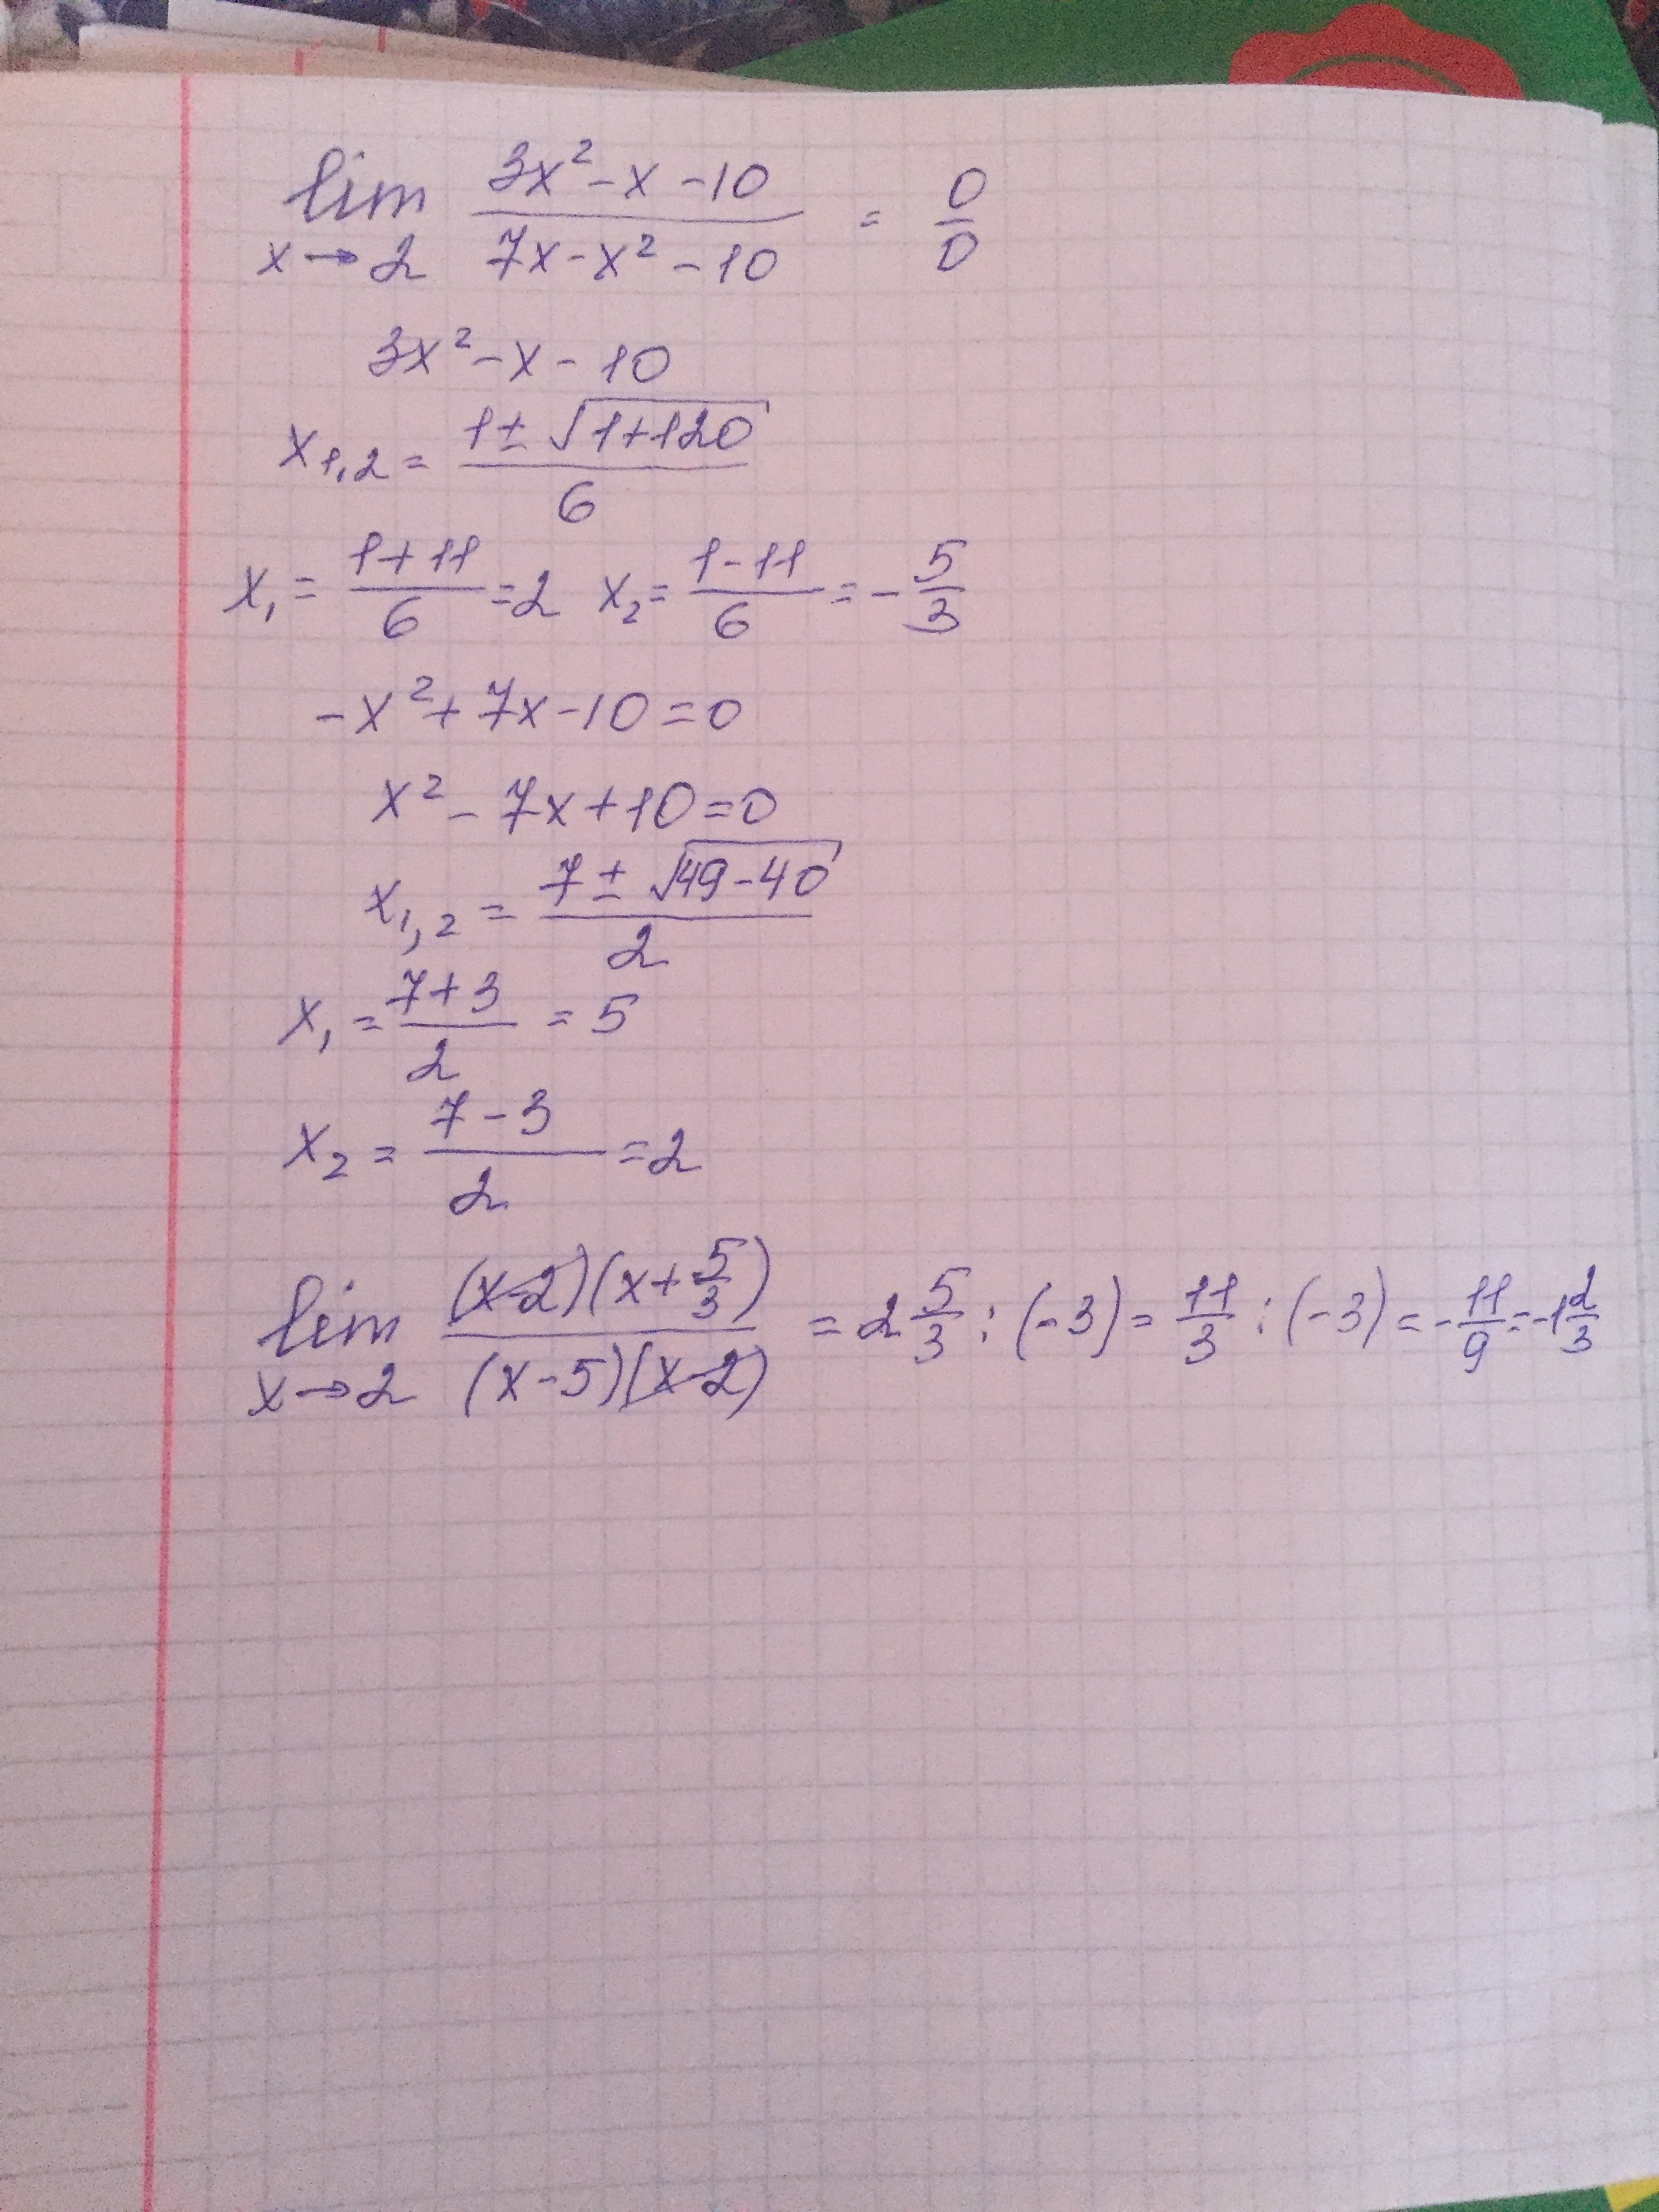 lim x→2 (3x² - x - 10)/(7x - x² - 10) = 0/0
3x² - x - 10
x₁,₂ = (1 ± √(1+120))/6
x₁ = (1+11)/6 = 2 x₂ = (1-11)/6 = -5/3
-x² + 7x - 10 = 0
x² - 7x + 10 = 0
x₁,₂ = (7 ± √(49-40))/2
x₁ = (7+3)/2 = 5
x₂ = (7-3)/2 = 2
lim x→2 ((x-2)(x+5/3))/((x-5)(x-2)) = 2 5/3 : (-3) = 11/3 : (-3) = -11/9 = -1 2/3